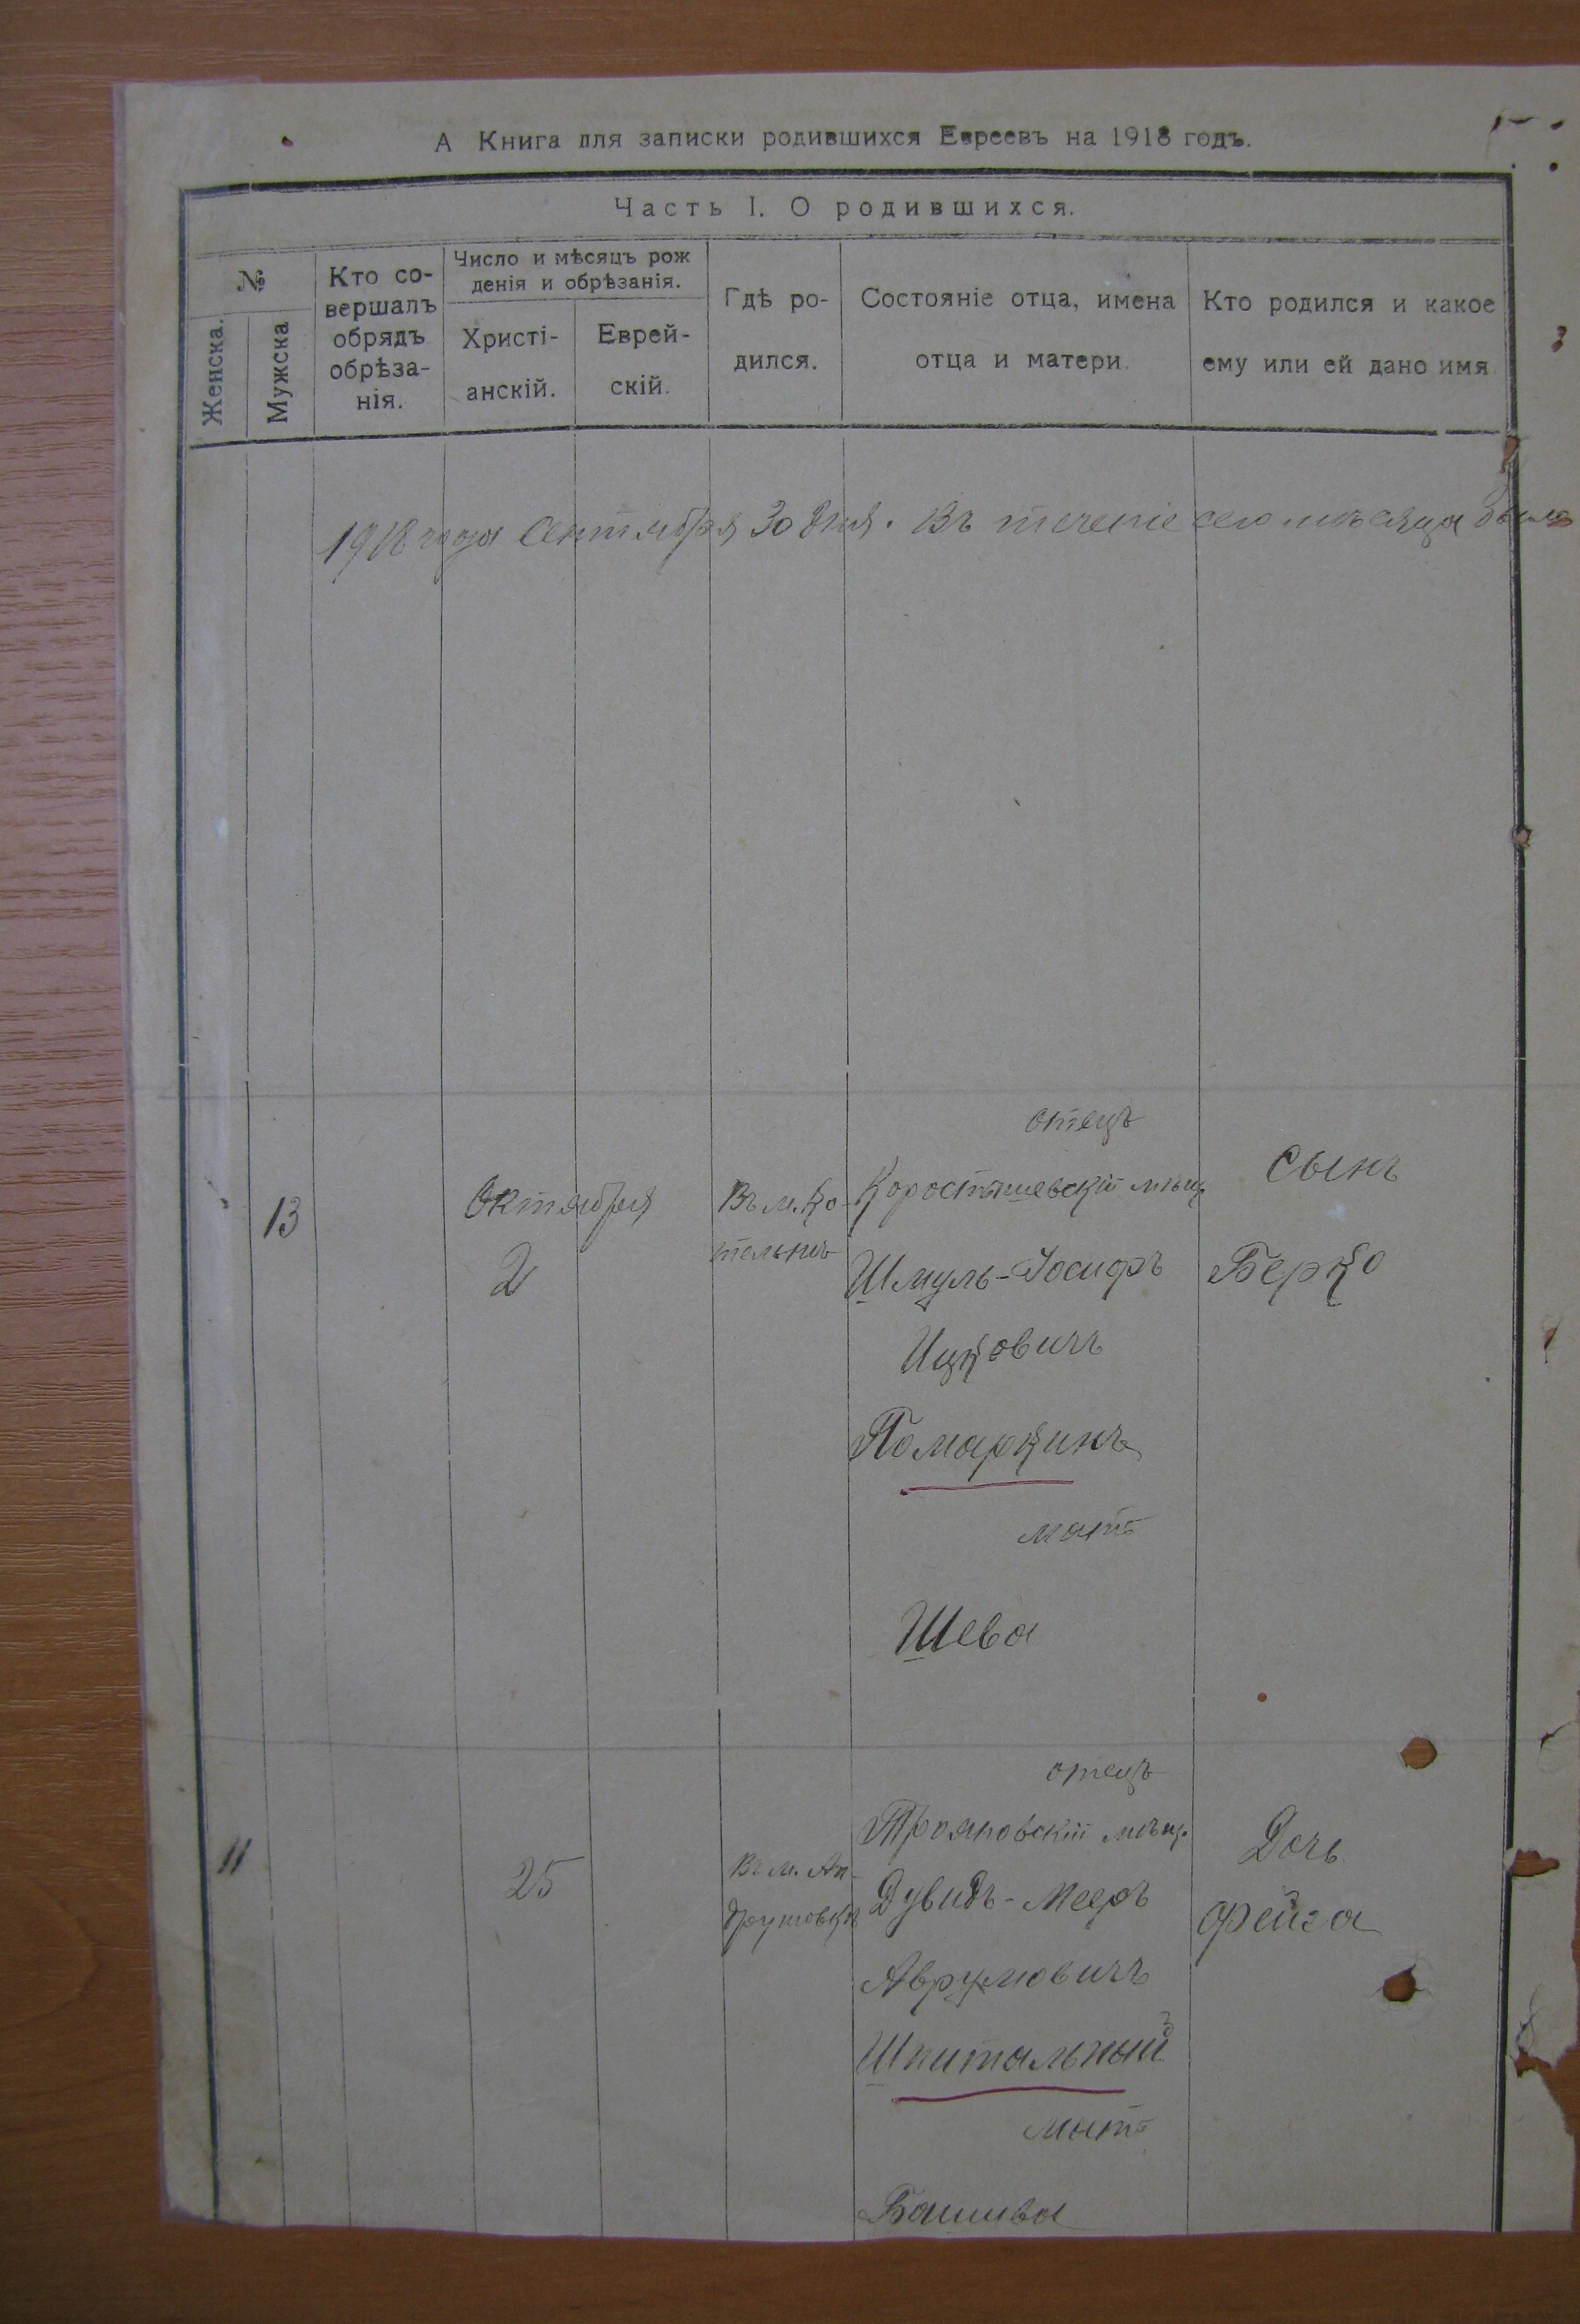 А Книга для записки родившихся Евреевъ на 1918 годъ.
Часть I. О родившихся.
№
Женска.
Мужска
Кто со-
вершалъ
обрядъ
обрѣза-
нія.
Число и мѣсяцъ рож
денія и обрѣзанія.
Христі-
анскій.
Еврей-
скій.
Гдѣ ро-
дился.
Состояніе отца, имена
отца и матери.
Кто родился и какое
ему или ей дано имя.
1918 года Сентября 30 дня. Въ теченіе сего мѣсяца было
13
Октября
2
Въ м. Ко-
тельнѣ
отецъ
Коростышевскій мѣщ.
Шмуль-Іосифъ
Ицковичъ
Помаркинъ
мать
Шева
сынъ
Берко
11
25
Въ м. Ан-
друшовкѣ
отецъ
Трояновскій мѣщ.
Дувидъ-Мееръ
Аврумовичъ
Шпитальный
мать
Башива
Дочь
Фейга